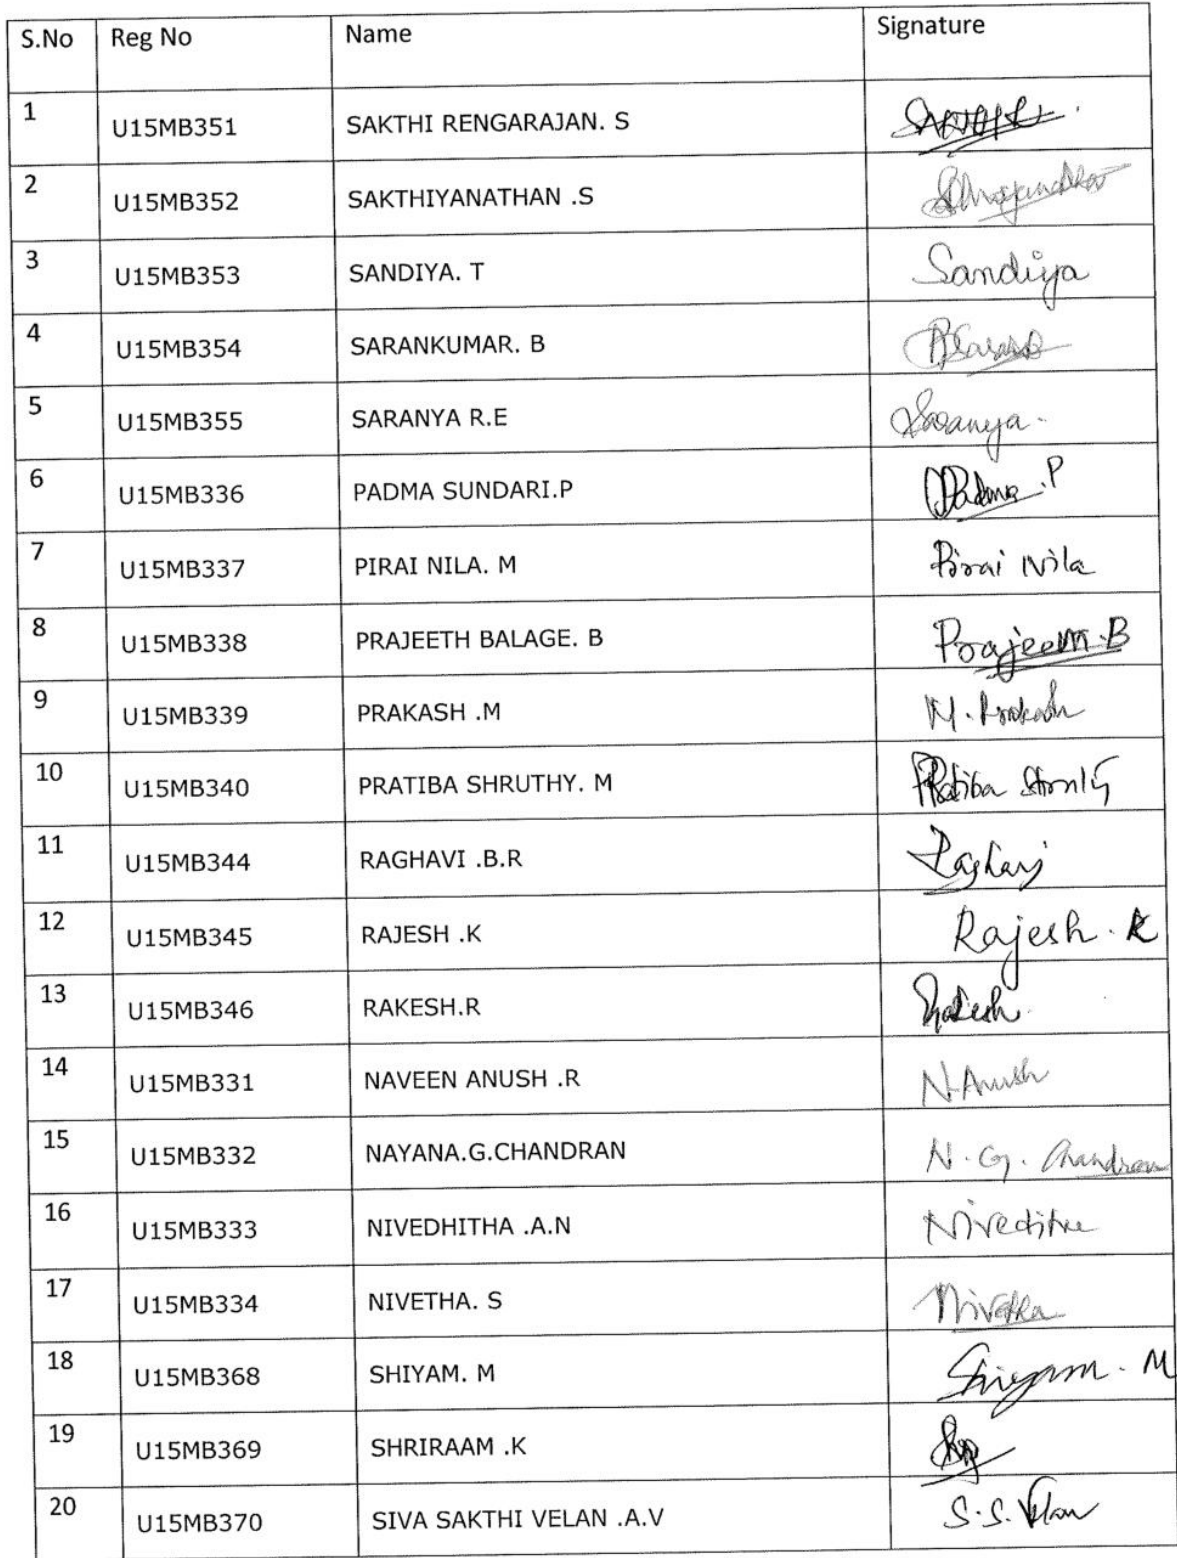 S.No Reg No Name Signature
1 U15MB351 SAKTHI RENGARAJAN. S
2 U15MB352 SAKTHIYANATHAN .S
3 U15MB353 SANDIYA. T Sandiya
4 U15MB354 SARANKUMAR. B
5 U15MB355 SARANYA R.E Saranya.
6 U15MB336 PADMA SUNDARI.P Padma .P
7 U15MB337 PIRAI NILA. M Pirai Nila
8 U15MB338 PRAJEETH BALAGE. B Prajeeth.B
9 U15MB339 PRAKASH .M M. Prakash
10 U15MB340 PRATIBA SHRUTHY. M Pratiba
11 U15MB344 RAGHAVI .B.R Raghavi
12 U15MB345 RAJESH .K Rajesh . K
13 U15MB346 RAKESH.R Rakesh
14 U15MB331 NAVEEN ANUSH .R N.Anush
15 U15MB332 NAYANA.G.CHANDRAN N. G. Chandran
16 U15MB333 NIVEDHITHA .A.N
17 U15MB334 NIVETHA. S Nivetha
18 U15MB368 SHIYAM. M Shiyam . M
19 U15MB369 SHRIRAAM .K
20 U15MB370 SIVA SAKTHI VELAN .A.V S.S. Velan